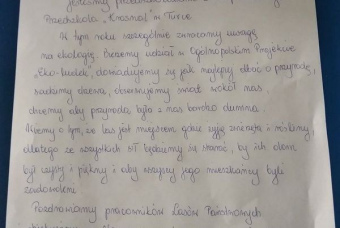 Jesteśmy przedszkolakami z
Przedszkola "Krasnal" w Turce.
W tym roku szczególnie zwracamy uwagę
na ekologię. Bierzemy udział w Ogólnopolskim Projekcie
"Eko-ludek", dowiadujemy się jak najlepiej dbać o przyrodę,
sadzimy drzewa, obserwujemy świat wokół nas,
chcemy aby przyroda była z nas bardzo dumna.
Wiemy o tym, że las jest miejscem gdzie żyją zwierzęta i rośliny,
dlatego ze wszystkich sił będziemy się starać, by ich dom
był czysty i piękny i aby wszyscy jego mieszkańcy byli
zadowoleni.
Pozdrawiamy pracowników Lasów Państwowych